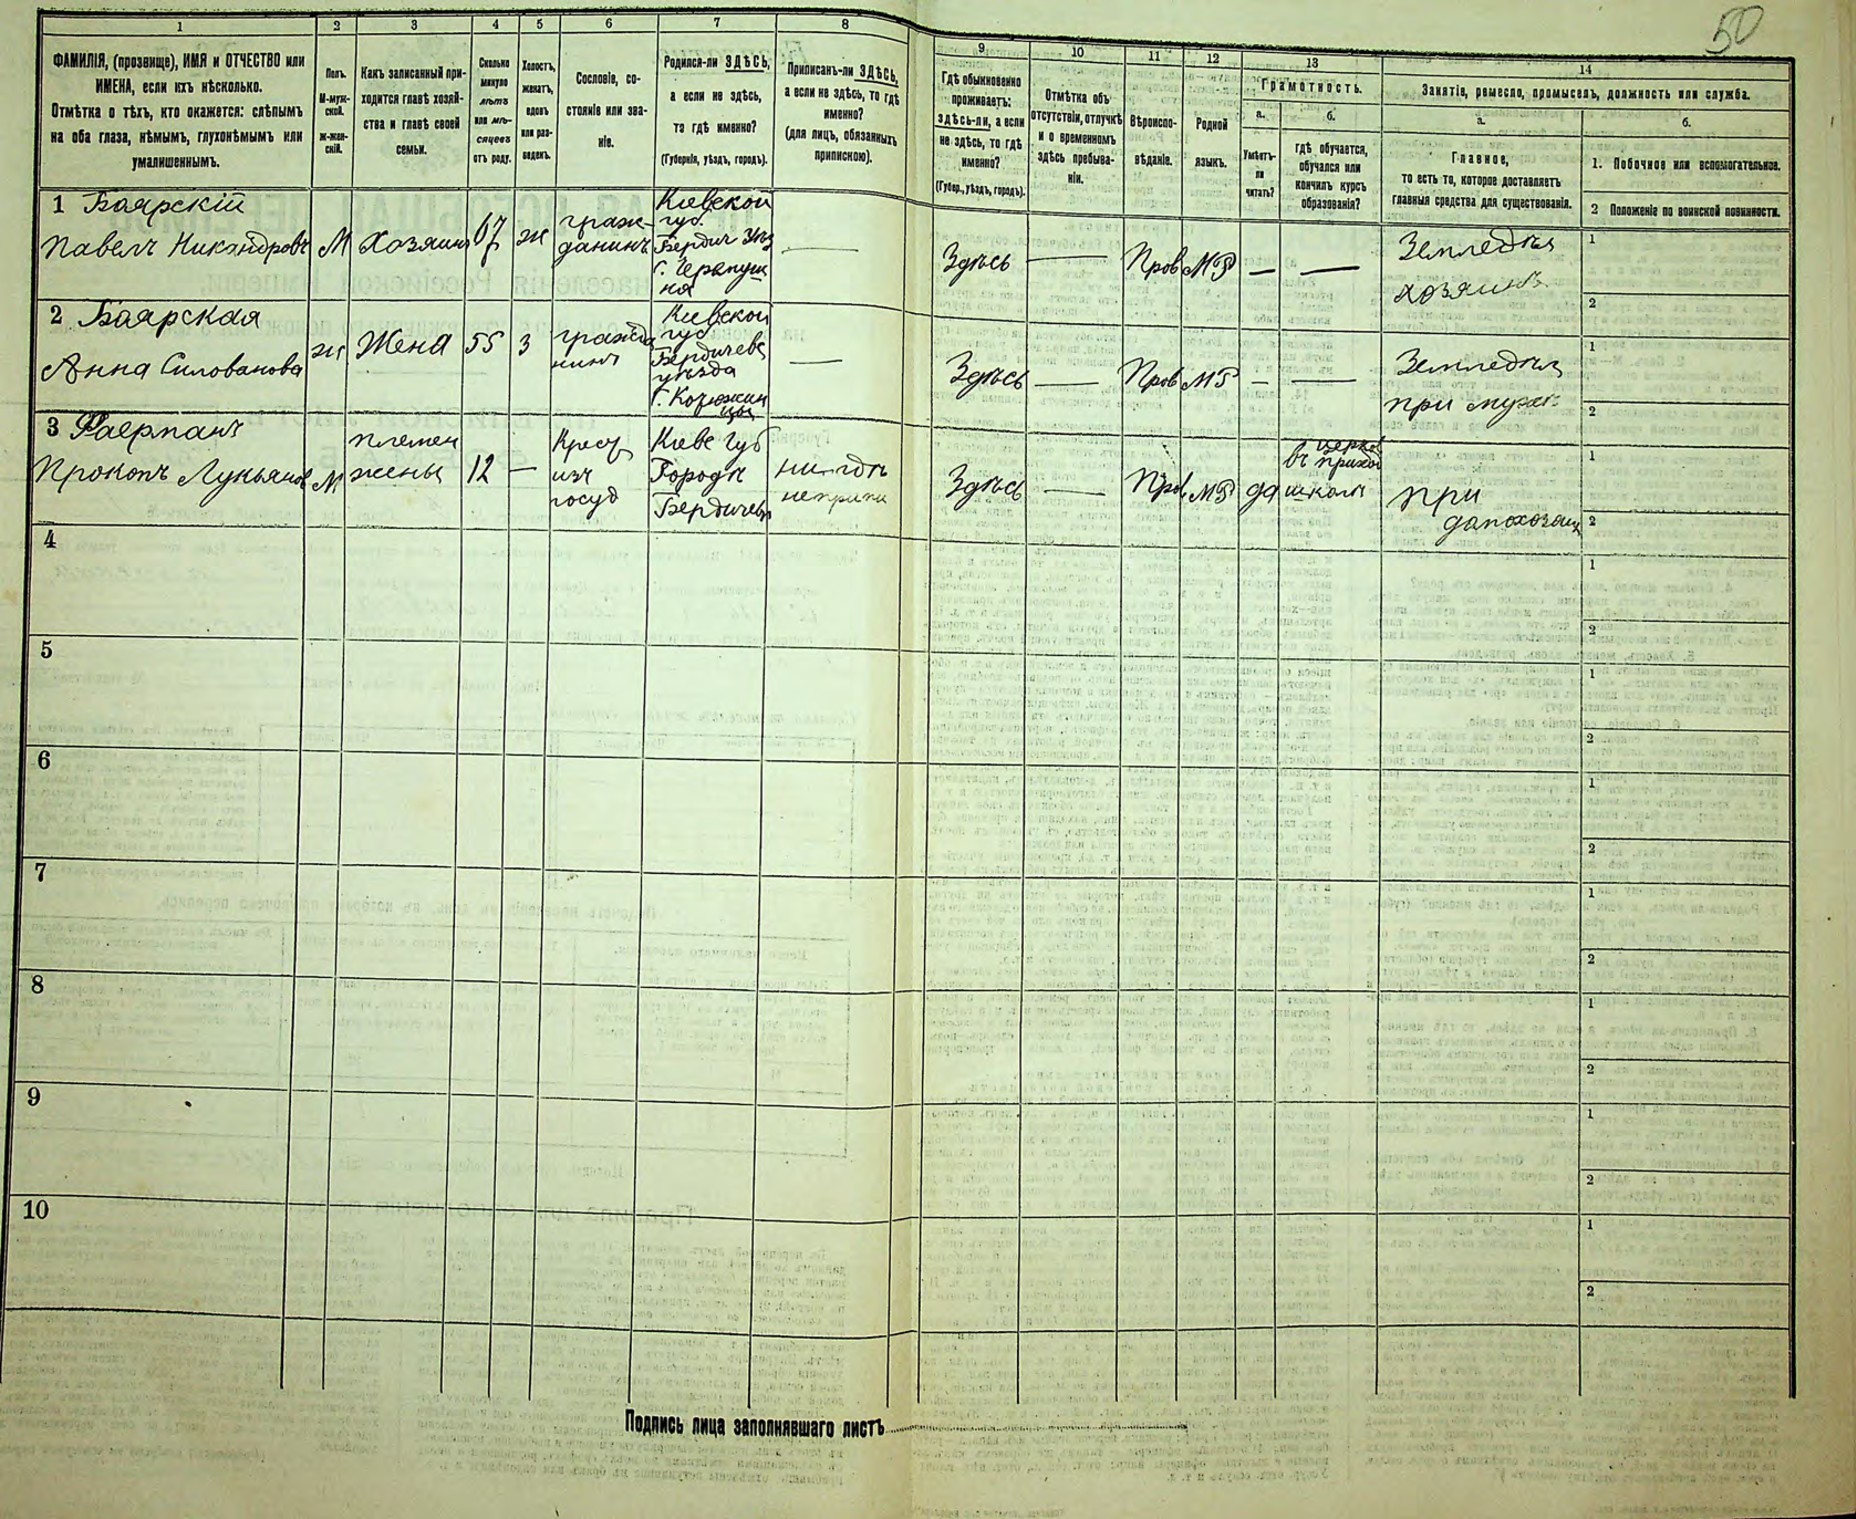 50
1 2 3 4 5 6 7 8 9 10 11 12 13 14
ФАМИЛІЯ, (прозвище), ИМЯ и ОТЧЕСТВО или
ИМЕНА, если ихъ нѣсколько.
Отмѣтка о тѣхъ, кто окажется: слѣпымъ
на оба глаза, нѣмымъ, глухонѣмымъ или
умалишеннымъ.
Полъ.
М-муж-
ской.
ж-жен-
скій.
Какъ записанный при-
ходится главѣ хозяй-
ства и главѣ своей
семьи.
Сколько
минуло
лѣтъ
или мѣ-
сяцевъ
отъ роду.
Холостъ,
женатъ,
вдовъ
или раз-
веденъ.
Сословіе, со-
стояніе или зва-
ніе.
Родился-ли ЗДѢСЬ,
а если не здѣсь,
то гдѣ именно?
(Губернія, уѣздъ, городъ).
Приписанъ-ли ЗДѢСЬ,
а если не здѣсь, то гдѣ
именно?
(для лицъ, обязанныхъ
припискою).
Гдѣ обыкновенно
проживаетъ:
здѣсь-ли, а если
не здѣсь, то гдѣ
именно?
(Губер., уѣздъ, городъ).
Отмѣтка объ
отсутствіи, отлучкѣ
и о временномъ
здѣсь пребыва-
ніи.
Вѣроиспо-
вѣданіе.
Родной
языкъ.
Грамотность.
а.
Умѣетъ-
ли
читать?
б.
гдѣ обучается,
обучался или
кончилъ курсъ
образованія?
Занятіе, ремесло, промыселъ, должность или служба.
а.
Главное,
то есть то, которое доставляетъ
главныя средства для существованія.
б.
1. Побочное или вспомогательное.
2 Положеніе по воинской повинности.
1 Боярскій
Павелъ Никандровъ
М
Хозяинъ
67
ж
граж-
данинъ
Кіевской
губ.
Бердич
—
Здѣсь
—
Прав
МР
—
—
Земледѣл
хозяинъ
1
2
2 Боярская
Анна Силованова
ж
Жена
55
з
Кіевской
губ
Бердичевс
уѣзда
—
Здѣсь
—
Прав
МР
—
—
Земледѣл
при мужѣ
1
2
3 Фаерманъ
Прокопъ Лукьянов
М
племен
жены
12
—
Крест
изъ
госуд
Кіев губ
Городѣ
Бердичевѣ
нигдѣ
неприпи
Здѣсь
—
Прав
МР
да
въ церко
приход
школѣ
при
1
2
4
1
2
5
1
2
6
1
2
7
1
2
8
1
2
9
1
2
10
1
2
Подпись лица заполнявшаго листъ